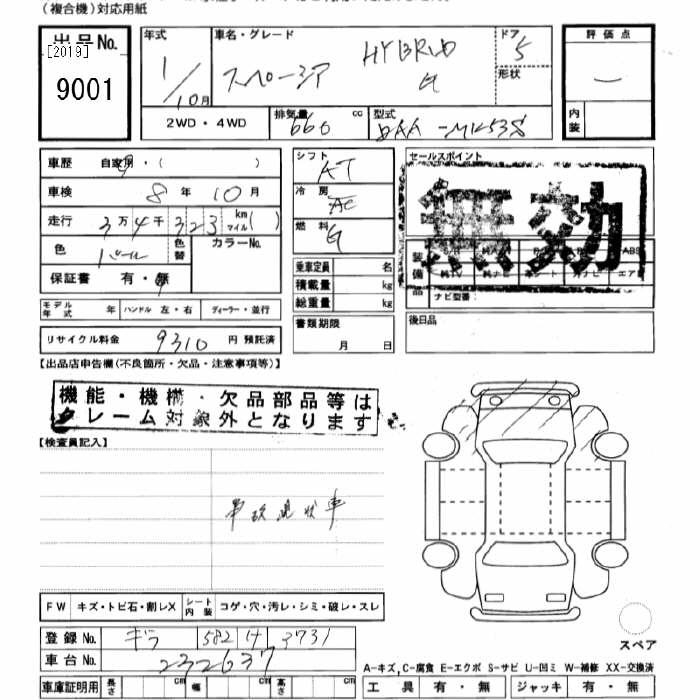 (複合機)対応用紙
出品No.
[2019]
9001
年式
1/10月
車名・グレード
スペーシア
HYBRID
G
ドア
5
形状
評価点
内装
2WD・4WD
排気量
660
cc
型式
DAA-MK53S
車歴
自家用・( )
車検
8年10月
走行
3万4千323
km
マイル
( )
色
パール
色替
カラーNo.
保証書
有・無
モデル年式
年
ハンドル 左・右
ディーラー・並行
リサイクル料金
9310
円 預託済
シフト
AT
冷房
AC
燃料
G
乗車定員
名
積載量
kg
総重量
kg
書類期限
月 日
セールスポイント
無効
装備品
ナビ型番:
後日品
【出品店申告欄(不良箇所・欠品・注意事項等)】
機能・機構・欠品部品等は
クレーム対象外となります
【検査員記入】
事故現状車
FW
キズ・トビ石・割レX
シート内装
コゲ・穴・汚レ・シミ・破レ・スレ
登録No.
582
3731
車台No.
232637
車庫証明用
長さ
cm
幅
cm
高さ
cm
スペア
A-キズ, C-腐食 E-エクボ S-サビ U-凹ミ W-補修 XX-交換済
工具 有・無
ジャッキ 有・無